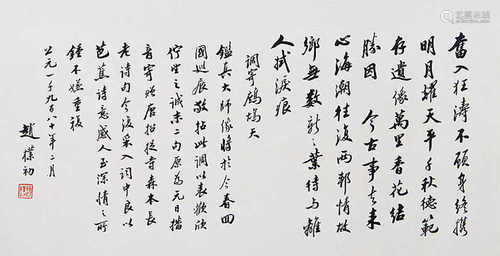 奮入狂濤不顧身終攜
明月耀天平千秋德範
存遺像萬里香花結
勝因 今古事去來
心海潮往復兩邦情故
鄉無數新新葉待與離
人拭淚痕
調寄鷓鴣天
鑑真大師像將於今春回
國巡展敬拈此調以表歡欣
佇望之誠末二句原為元日揩
音寄唐招提寺森本長
老詩句今復采入詞中良以
芭蕉詩意感人至深情之所
鍾不嫌重複
公元一千九百八十年二月
趙樸初